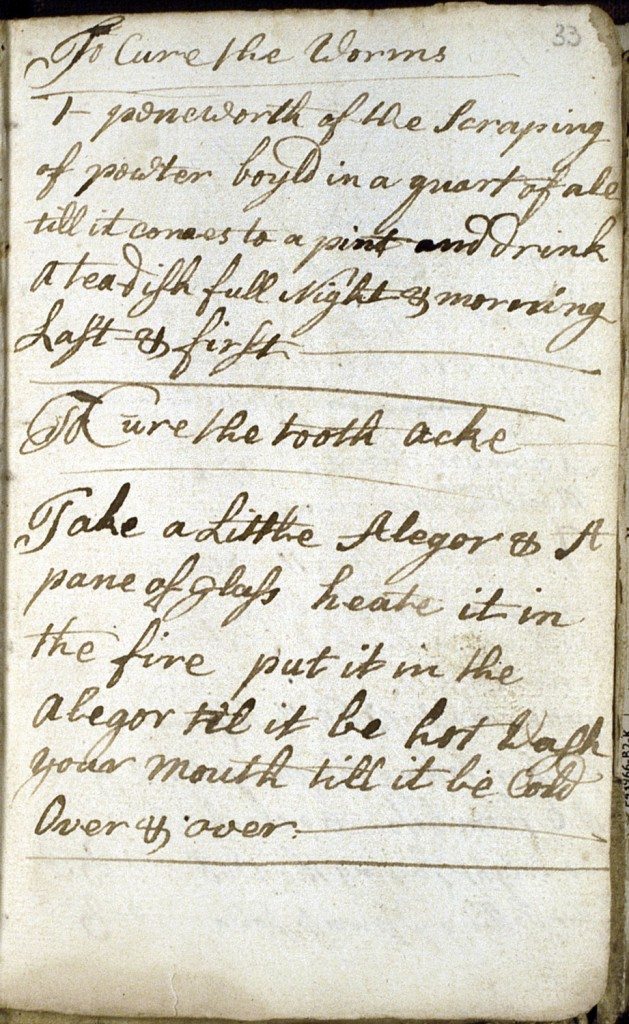 33
To Cure the Worms
1 peneworth of the Scraping
of pewter boyld in a quart of ale
till it comes to a pint and drink
A tea dish full Night & morning
Last & first
To Cure the tooth acke
Take a Little Alegor & A
pane of glass heate it in
the fire put it in the
Alegor til it be hot Wash
your mouth till it be Cold
Over & over